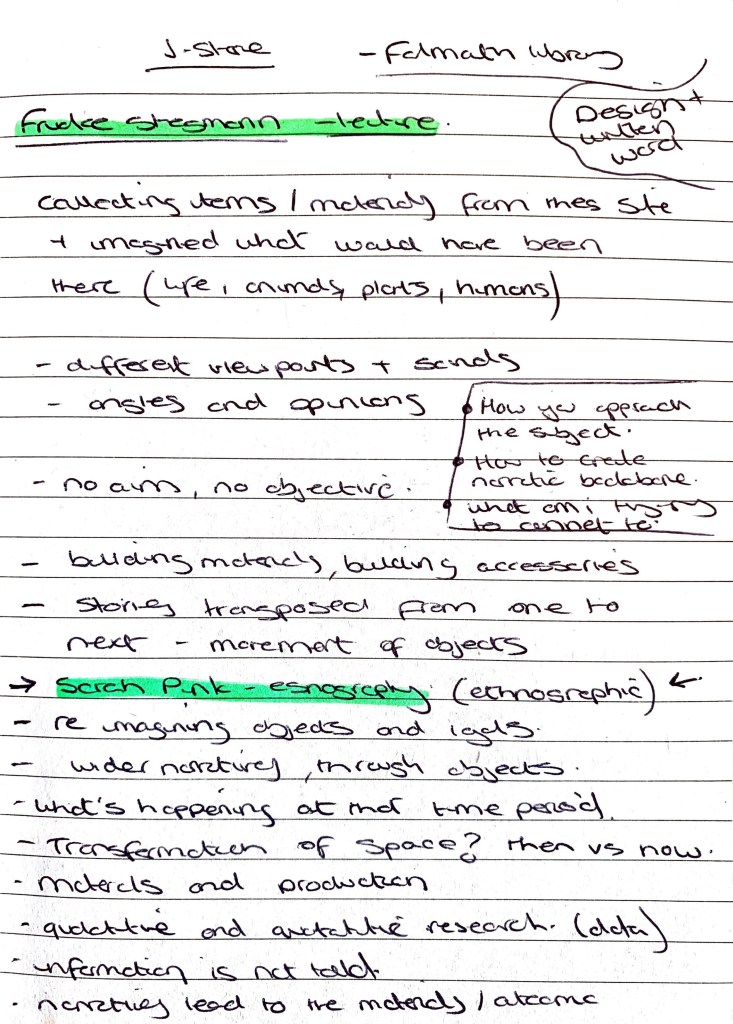 J-Store - Falmouth library
Frudee Stegmann - lecture.
Design +
written
word
collecting items / materials from thes site
+ imagined what would have been
there (life, animals, plants, humans)
- different viewpoints + sands
- angles and opinions
• How you approach
the subject.
• How to create
narrative backbone.
- no aim, no objective.
• what am i trying
to connect to.
- building materials, building accessories
- stories transposed from one to
next - movement of objects
→ Sarah Pink - esnography. (ethnographic) ←
- re imagining objects and
- wider narratives, through objects.
- what's happening at that time period.
- Transformation of space? then vs now.
- materials and production
- qualitative and quantative research. (data)
- information is not told.
- narratives lead to the materials / outcome